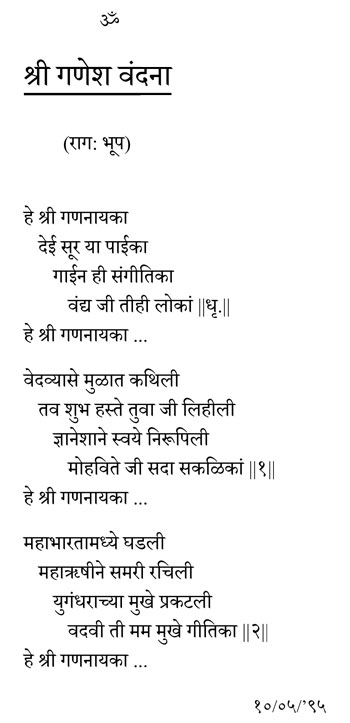 ॐ
श्री गणेश वंदना
(राग: भूप)
हे श्री गणनायका
देई सूर या पाईका
गाईन ही संगीतिका
वंद्य जी तीही लोकां ||धृ.||
हे श्री गणनायका ...
वेदव्यासे मुळात कथिली
तव शुभ हस्ते तुवा जी लिहीली
ज्ञानेशाने स्वये निरूपिली
मोहविते जी सदा सकळिकां ||१||
हे श्री गणनायका ...
महाभारतामध्ये घडली
महाऋषीने समरी रचिली
युगंधराच्या मुखे प्रकटली
वदवी ती मम मुखे गीतिका ||२||
हे श्री गणनायका ...
१०/०५/'९५